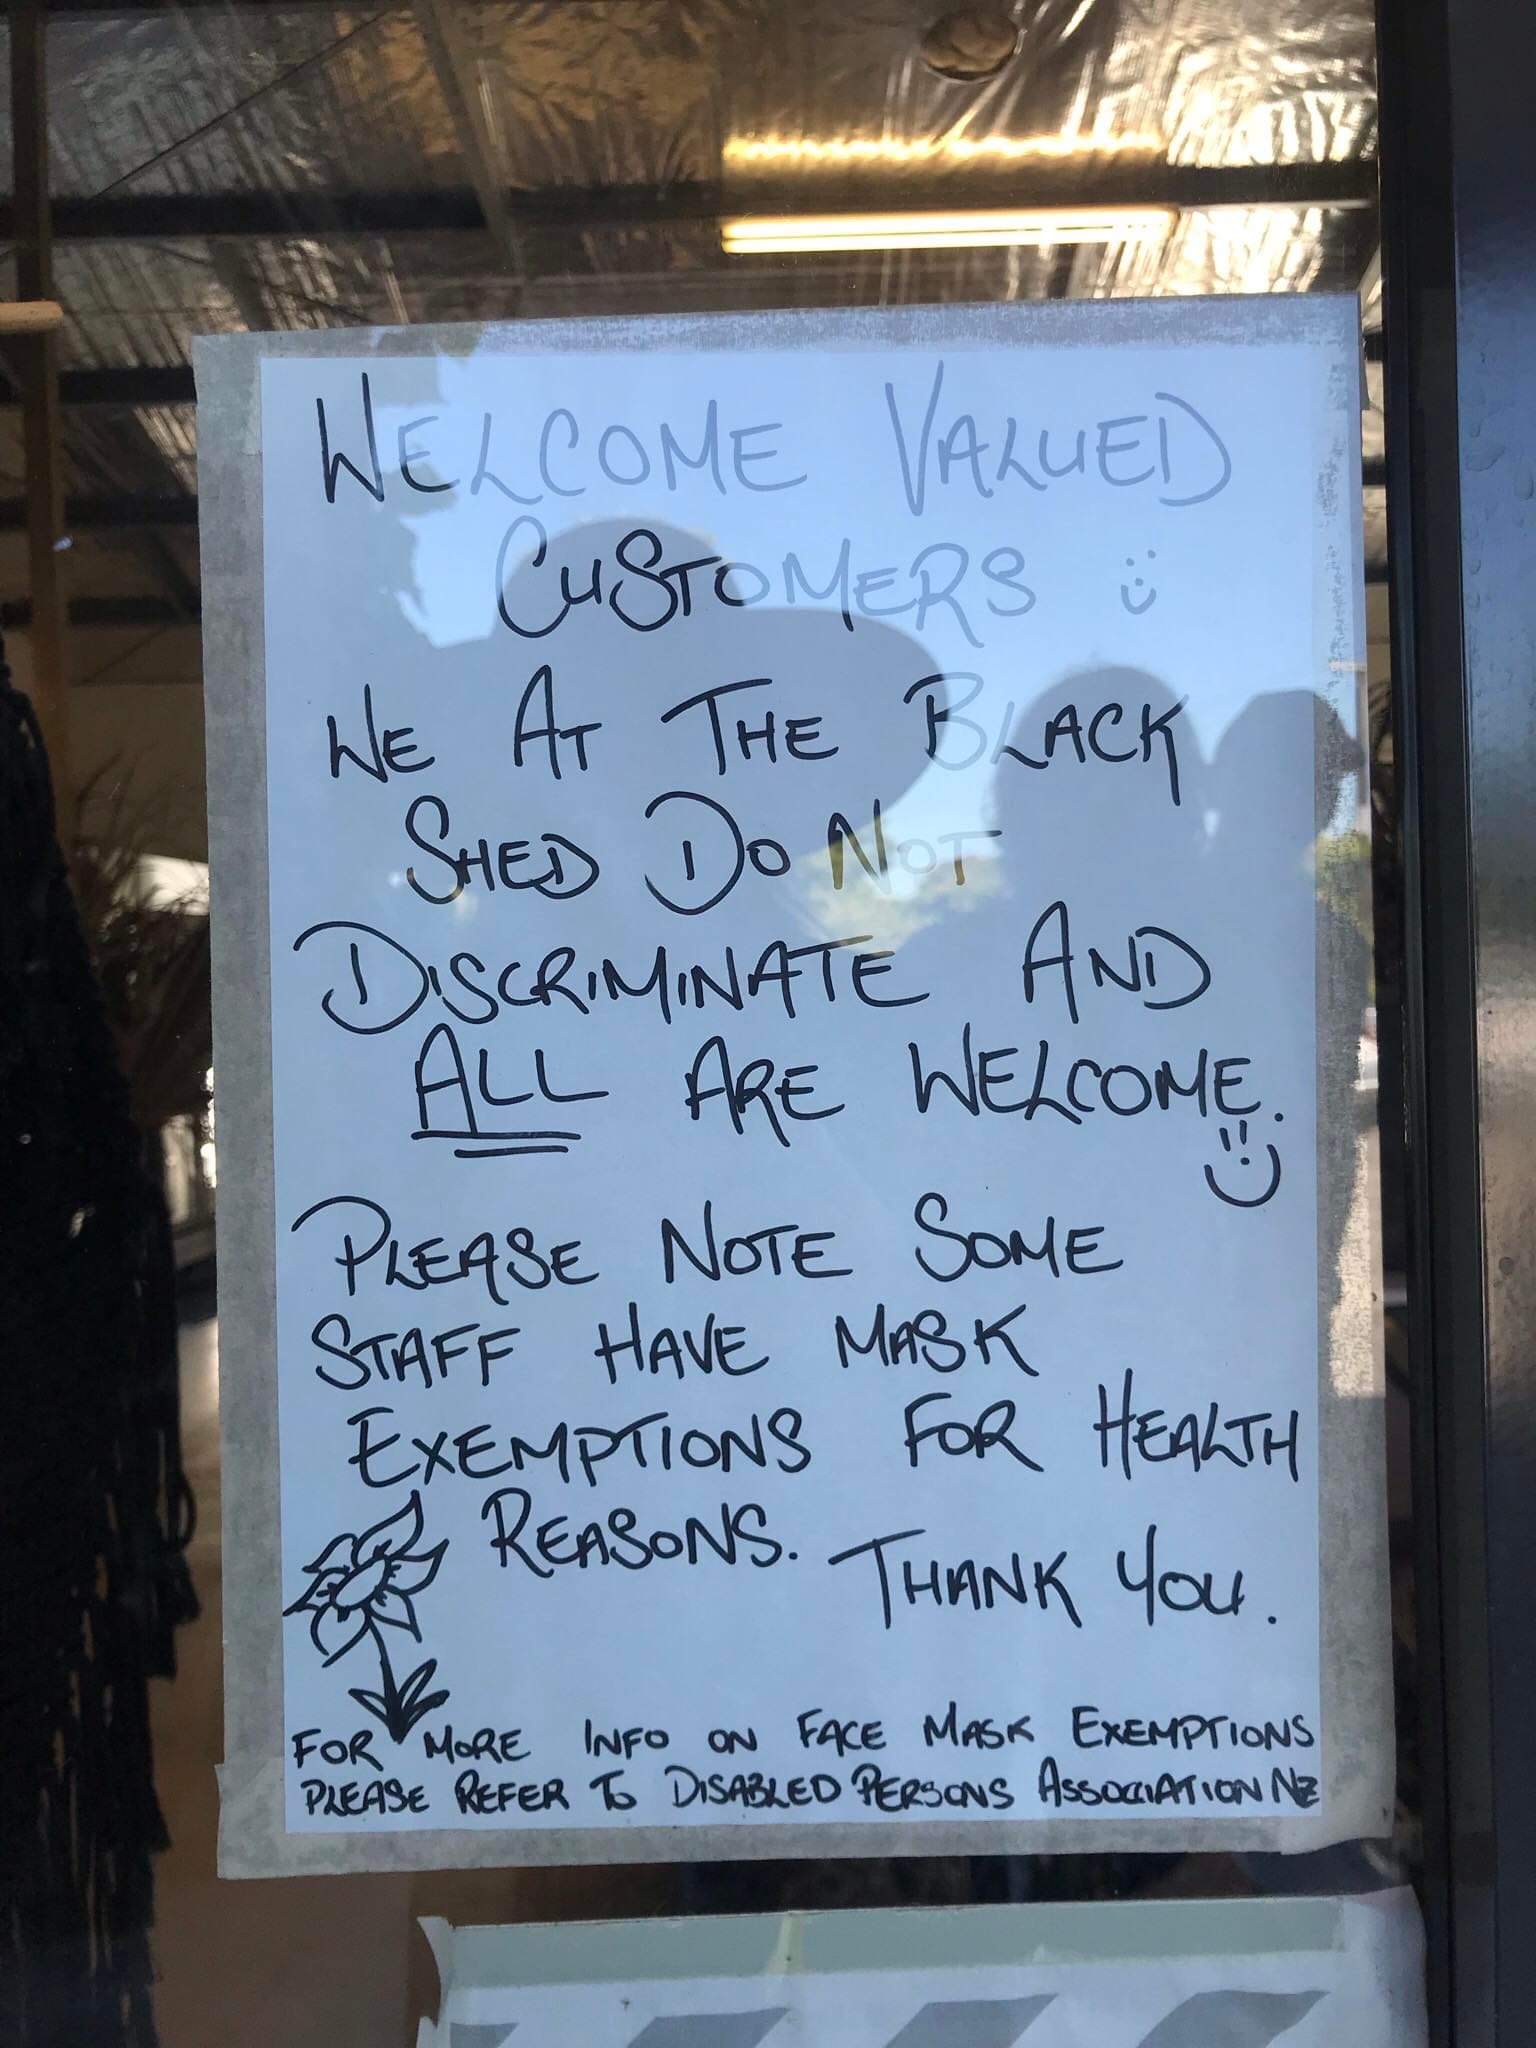 WELCOME VALUED
CUSTOMERS
WE AT THE BLACK
SHED DO NOT
DISCRIMINATE AND
ALL ARE WELCOME.
PLEASE NOTE SOME
STAFF HAVE MASK
EXEMPTIONS FOR HEALTH
REASONS. THANK YOU.
FOR MORE INFO ON FACE MASK EXEMPTIONS
PLEASE REFER TO DISABLED PERSONS ASSOCIATION NZ